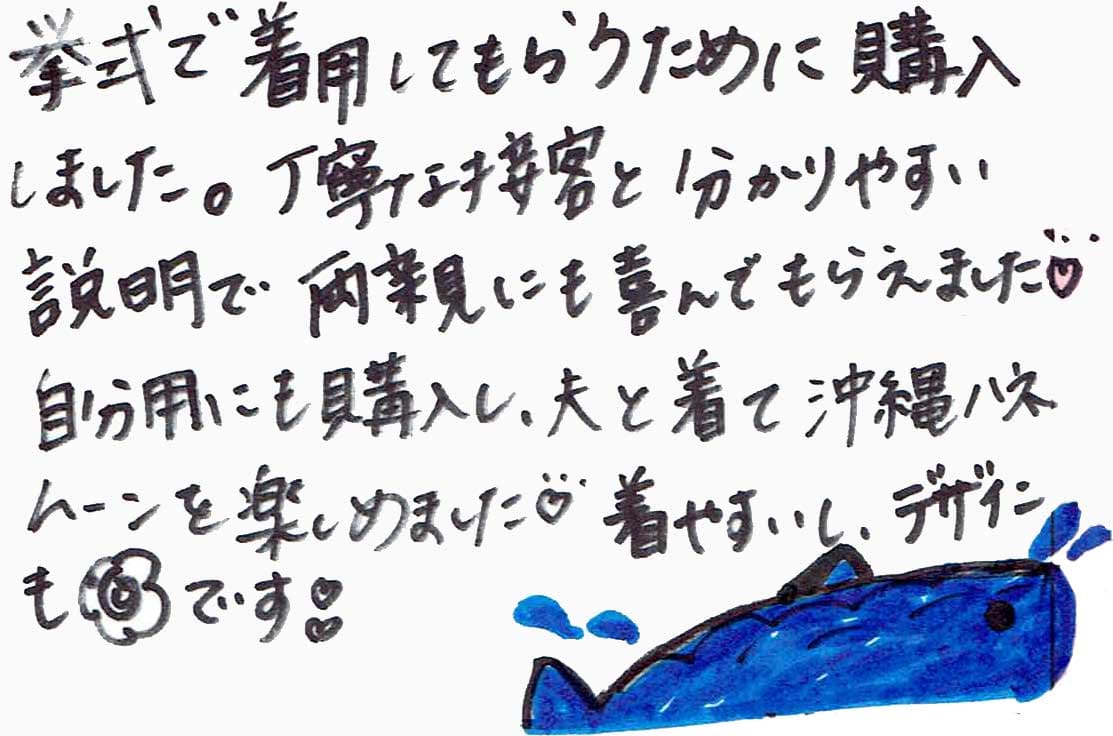 挙式で着用してもらうために購入
しました。丁寧な接客と分かりやすい
説明で両親にも喜んでもらえました♡
自分用にも購入し、夫と着て沖縄ハネ
ムーンを楽しめました♡着やすいし、デザイン
も◎です!!